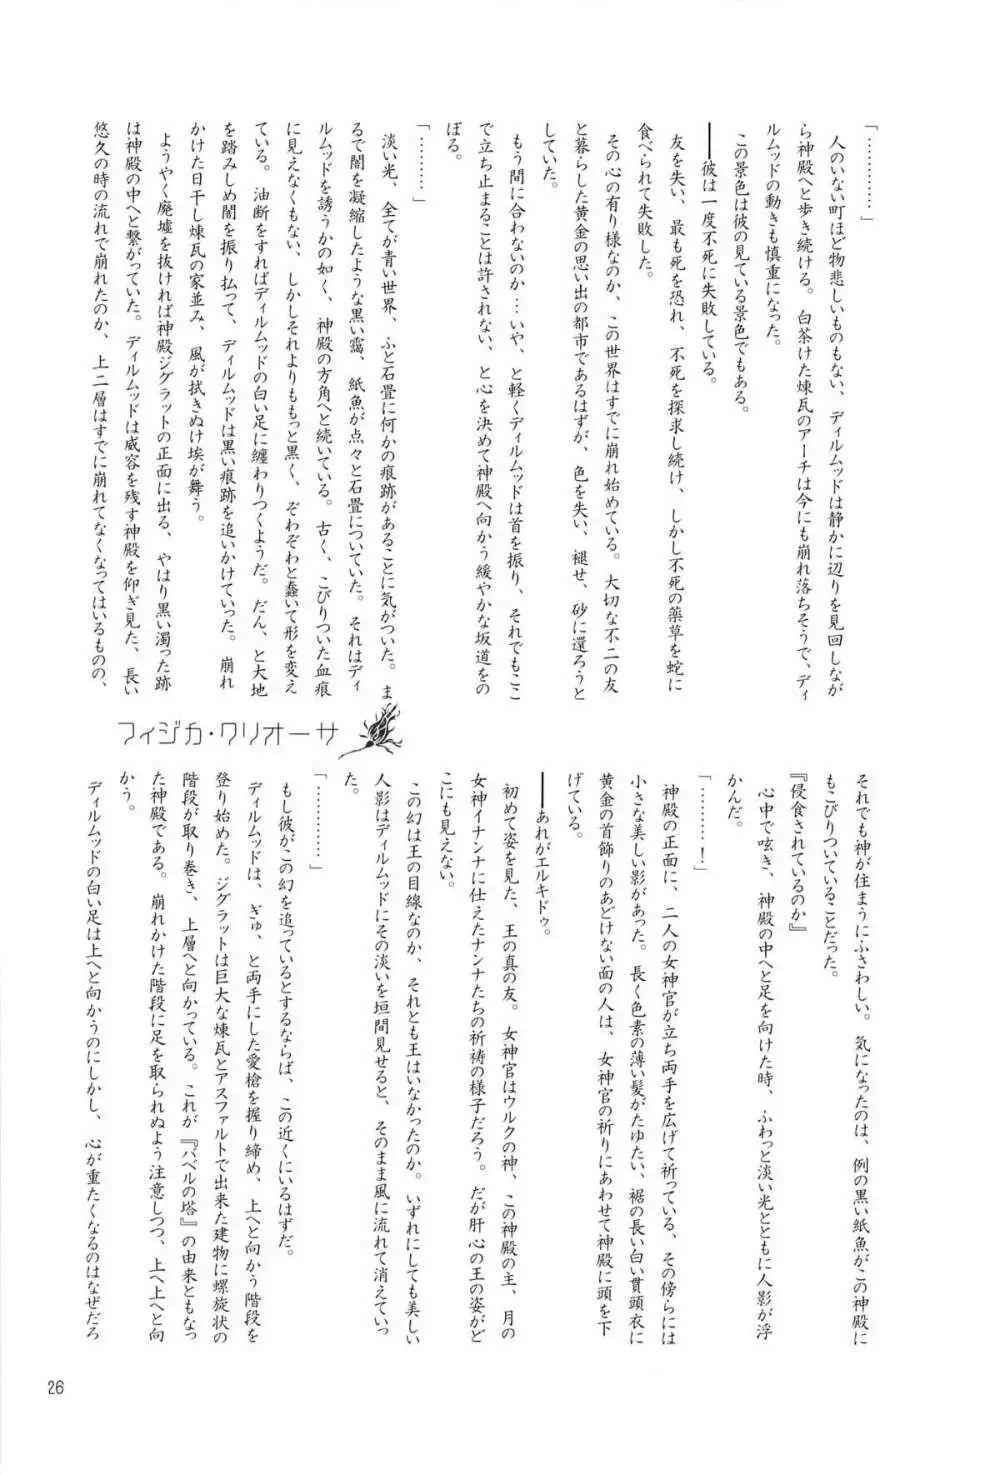 「…………」
　人のいない町ほど物悲しいものもない、ディルムッドは静かに辺りを見回しなが
ら神殿へと歩き続ける。白茶けた煉瓦のアーチは今にも崩れ落ちそうで、ディ
ルムッドの動きも慎重になった。
　この景色は彼の見ている景色でもある。
――彼は一度不死に失敗している。
　友を失い、最も死を恐れ、不死を探求し続け、しかし不死の薬草を蛇に
食べられて失敗した。
　その心の有り様なのか、この世界はすでに崩れ始めている。大切な不二の友
と暮らした黄金の思い出の都市であるはずが、色を失い、褪せ、砂に還ろうと
していた。
　もう間に合わないのか…いや、と軽くディルムッドは首を振り、それでもここ
で立ち止まることは許されない、と心を決めて神殿へ向かう緩やかな坂道をの
ぼる。
「…………」
　淡い光、全てが青い世界、ふと石畳に何かの痕跡があることに気がついた。ま
るで闇を凝縮したような黒い靄、紙魚が点々と石畳についていた。それはディ
ルムッドを誘うかの如く、神殿の方角へと続いている。古く、こびりついた血痕
に見えなくもない、しかしそれよりももっと黒く、ぞわぞわと蠢いて形を変え
ている。油断をすればディルムッドの白い足に纏わりつくようだ。だん、と大地
を踏みしめ闇を振り払って、ディルムッドは黒い痕跡を追いかけていった。崩れ
かけた日干し煉瓦の家並み、風が拭きぬけ埃が舞う。
　ようやく廃墟を抜ければ神殿ジグラットの正面に出る、やはり黒い濁った跡
は神殿の中へと繋がっていた。ディルムッドは威容を残す神殿を仰ぎ見た、長い
悠久の時の流れで崩れたのか、上二層はすでに崩れてなくなってはいるものの、
フィジカ・クリオーサ
それでも神が住まうにふさわしい。気になったのは、例の黒い紙魚がこの神殿に
もこびりついていることだった。
『侵食されているのか』
　心中で呟き、神殿の中へと足を向けた時、ふわっと淡い光とともに人影が浮
かんだ。
「………！」
　神殿の正面に、二人の女神官が立ち両手を広げて祈っている、その傍らには
小さな美しい影があった。長く色素の薄い髪がたゆたい、裾の長い白い貫頭衣に
黄金の首飾りのあどけない面の人は、女神官の祈りにあわせて神殿に頭を下
げている。
――あれがエルキドゥ。
　初めて姿を見た、王の真の友。女神官はウルクの神、この神殿の主、月の
女神イナンナに仕えたナンナたちの祈祷の様子だろう。だが肝心の王の姿がど
こにも見えない。
　この幻は王の目線なのか、それとも王はいなかったのか。いずれにしても美しい
人影はディルムッドにその淡いを垣間見せると、そのまま風に流れて消えていっ
た。
「…………」
　もし彼がこの幻を追っているとするならば、この近くにいるはずだ。
　ディルムッドは、ぎゅ、と両手にした愛槍を握り締め、上へと向かう階段を
登り始めた。ジグラットは巨大な煉瓦とアスファルトで出来た建物に螺旋状の
階段が取り巻き、上層へと向かっている。これが『バベルの塔』の由来ともなっ
た神殿である。崩れかけた階段に足を取られぬよう注意しつつ、上へ上へと向
かう。
　ディルムッドの白い足は上へと向かうのにしかし、心が重たくなるのはなぜだろ
26